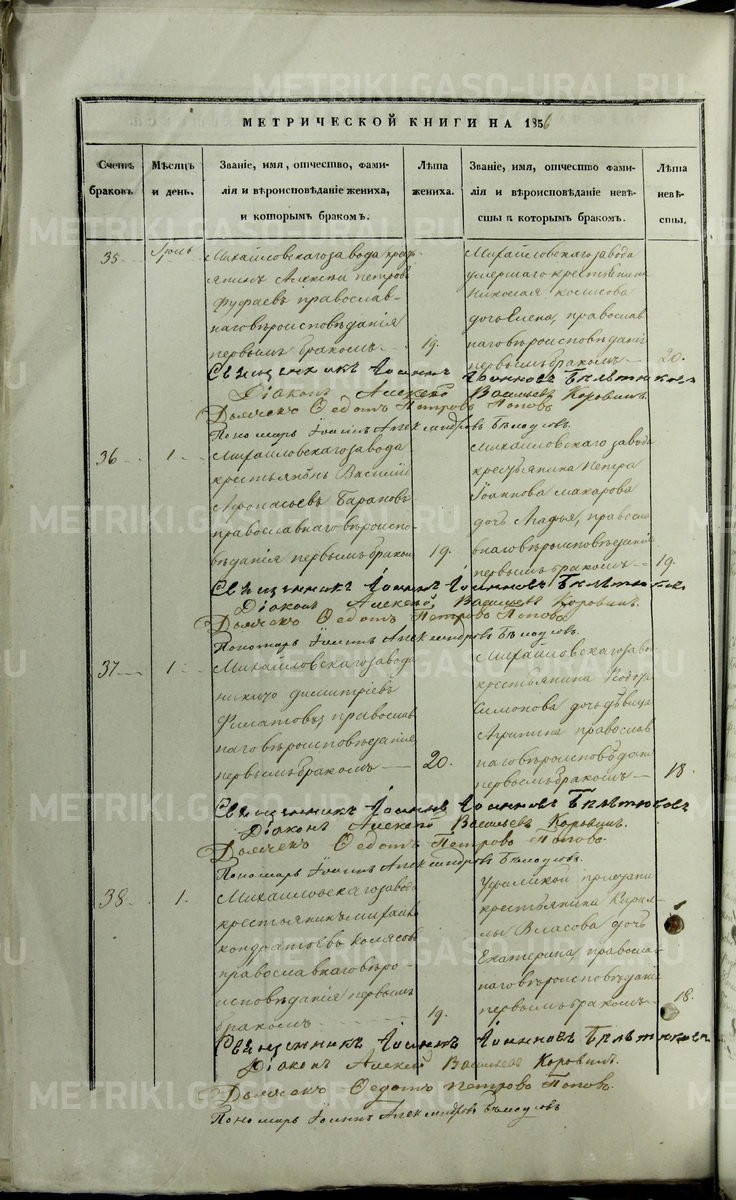 МЕТРИЧЕСКОЙ КНИГИ НА 1856
Счетъ браковъ.
Мѣсяцъ и день.
Званіе, имя, отчество, фами-
лія и вѣроисповѣданіе жениха,
и которымъ бракомъ.
Лѣта жениха.
Званіе, имя, отчество фами-
лія и вѣроисповѣданіе невѣ-
сты и которымъ бракомъ.
Лѣта невѣ-
сты.
35
Михайловскаго завода кресть
янинъ Алексѣй Петровъ
Фуфаевъ православ-
наго вѣроисповѣданія
первымъ бракомъ
19.
Михайловскаго завода
умершаго крестьянина
Николая
дочь Елена, православ
наго вѣроисповѣданія
первымъ бракомъ
20.
Священникъ Іоаннъ Іоанновъ
Діаконъ Алексѣй Васильевъ Коровинъ.
Дьячекъ Ѳедотъ Петровъ Поповъ
Пономарь Іоаннъ Александровъ
36
1.
Михайловскаго завода
крестьянинъ Василій
Афонасьевъ Барановъ
православнаго вѣроиспо-
вѣданія первымъ браком
19.
Михайловскаго завода
крестьянина Петра
Іоаннова Макарова
дочь Агафья, правосла
внаго вѣроисповѣданія
первымъ бракомъ
19.
Священникъ Іоаннъ Іоанновъ
Діаконъ Алексѣй Васильевъ Коровинъ.
Дьячекъ Ѳедотъ Петровъ Поповъ
Пономарь Іоаннъ Александровъ
37
1.
Михайловскаго завода
Димитріевъ
Филатовъ, православ
наго вѣроисповѣданія
первымъ бракомъ
20.
Михайловскаго заво
крестьянина
Симонова дочь дѣвица
Агрипина православ
наго вѣроисповѣдан
первымъ бракомъ
18.
Священникъ Іоаннъ Іоанновъ
Діаконъ Алексѣй Васильевъ Коровинъ.
Дьячекъ Ѳедотъ Петровъ Поповъ.
Пономарь Іоаннъ Александровъ
38.
1.
Михайловскаго завода
крестьянинъ Михаилъ
Кондратьевъ
православнаго вѣро-
исповѣданія первымъ
бракомъ
19.
Уфимской
крестьянина Кирил-
лы Власова дочь
Екатерина православ
наго вѣроисповѣдані
первымъ бракомъ
18.
Священникъ Іоаннъ Іоанновъ
Діаконъ Алексѣй Васильевъ Коровинъ.
Дьячекъ Ѳедотъ Петровъ Поповъ.
Пономарь Іоаннъ Александровъ
METRIKI.GASO-URAL.RU